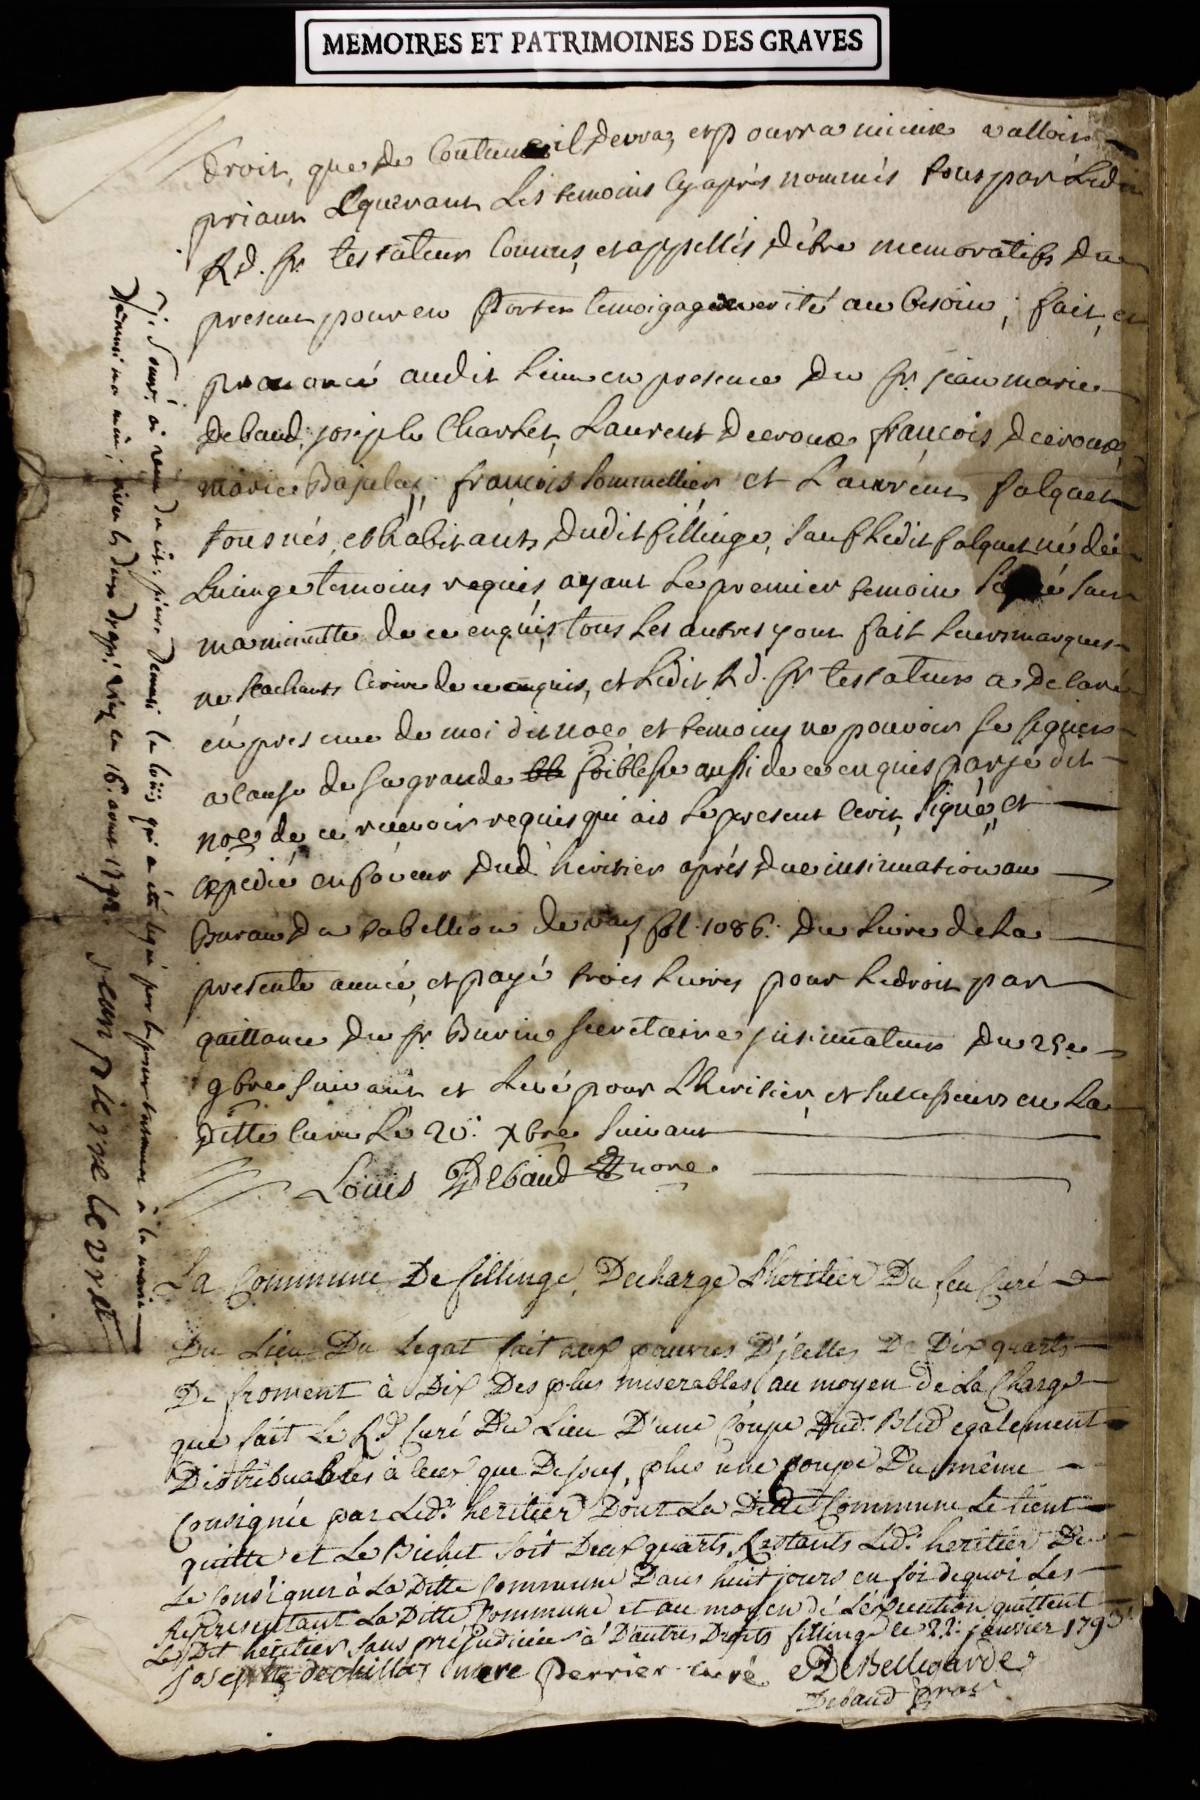 MEMOIRES ET PATRIMOINES DES GRAVES
droit, que de Coutume il devra, et pourra mieux valloir
priant requerant les temoins cy après nommés tous par Ledit
Rd. sr. testateur Connus, et appellés d'être memoratifs du
present pour en Porter temoigage de verité au besoin; fait, et
prononcé audit Lieu en presence du sr. jean marie
Debaud, joseph Charlet, Laurent Decroux françois Decroux,
marie Bajulaz, françois Sommellier et Laurent falquet
tous nés, et habitants dudit fillinge, sauf Ledit falquet né de
Lucinge temoins requis ayant Le premier temoin signé sur
ma minutte de ce enquis, tous Les autres y ont fait Leurs marques
ne sachants Ecrire de ce enquis, et Ledit Rd. sr. testateur a declaré
en presence de moi dit nore et temoins ne pouvoir se signer
a cause de sa grande foiblesse aussi de ce enquis par je dit
nore de ce recevoir requis qui ais Le present Ecrit, signé, et
expedié en faveur dud. heritier après due insinuation au
Bureau du tabellion de fol. 1086. du Livre de La
presente année, et payé trois Livres pour Le droit par
quittance du sr. Burin secretaire jnsinuateur du 25e
9bre suivant et Levé pour L'heritier, et successeurs en La
ditte Cure Le 20. Xbre suivant
Louis Debaud nore.
La Commune De fillinge, Decharge L'heritier Du feu Curé
Du Lieu Du Legat fait aux pauvres D'jcelles De Dix quarts
De froment à Dix Des plus miserables au moyen de La Charge
que fait Le Rd. Curé Du Lieu D'une Coupe Dud. Bled egalement
Distribuables à Ceux que Dessus, plus une Coupe Du même
Consignée par Led. heritier Dont La Ditte Commune Le tient
quitte et Le Bichet soit Deux quarts Restants Led. heritier De
Le Consigner à La Ditte Commune Dans huit jours en foi dequoi Les
Representant La Ditte Commune et au moyen de L'éxecution quittent
Le Dit heritier, sans prejudicier à D'autres Droits fillinge ce 22. janvier 1793
joseph mere Perrier curé DeBellegarde
Debaud
Je soussé. ai reçu du cit. pierre la Louis qui a été legué par le present testament à la
16. aout 1792 jean pierre